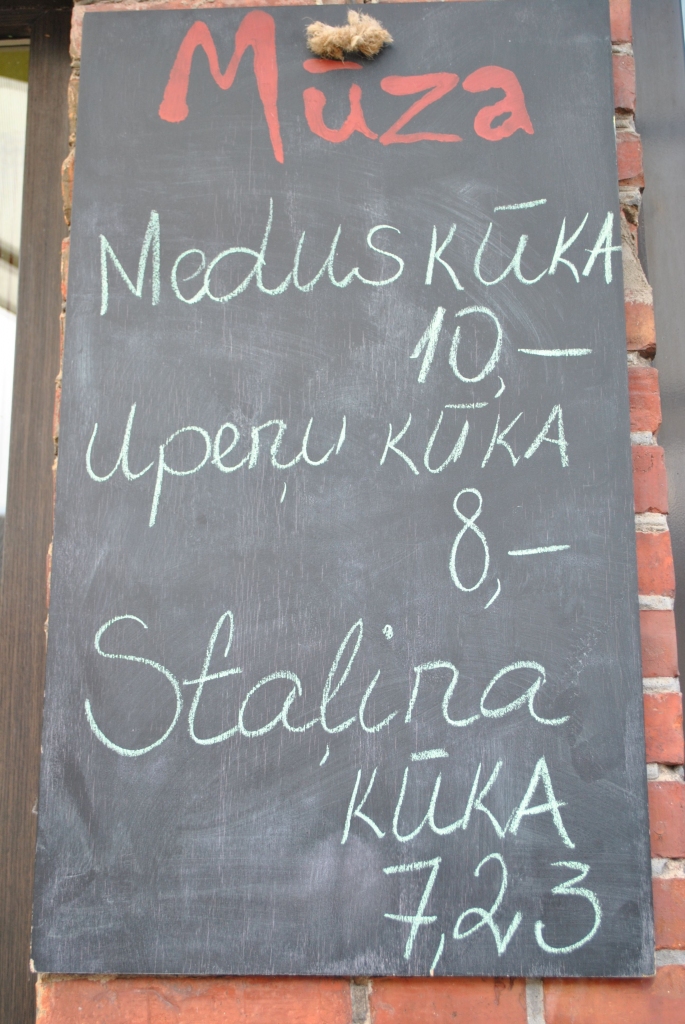 Mūza
Medus kūka
10,-
Upeņu kūka
8,-
Staļina
kūka
7,23